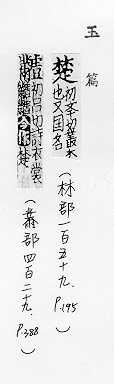 玉篇
楚 初舉切叢木
也又国名
(林部一百五十九. P.195)
初呂切詩衣裳
今作楚
(黹部四百二十九. P.388)